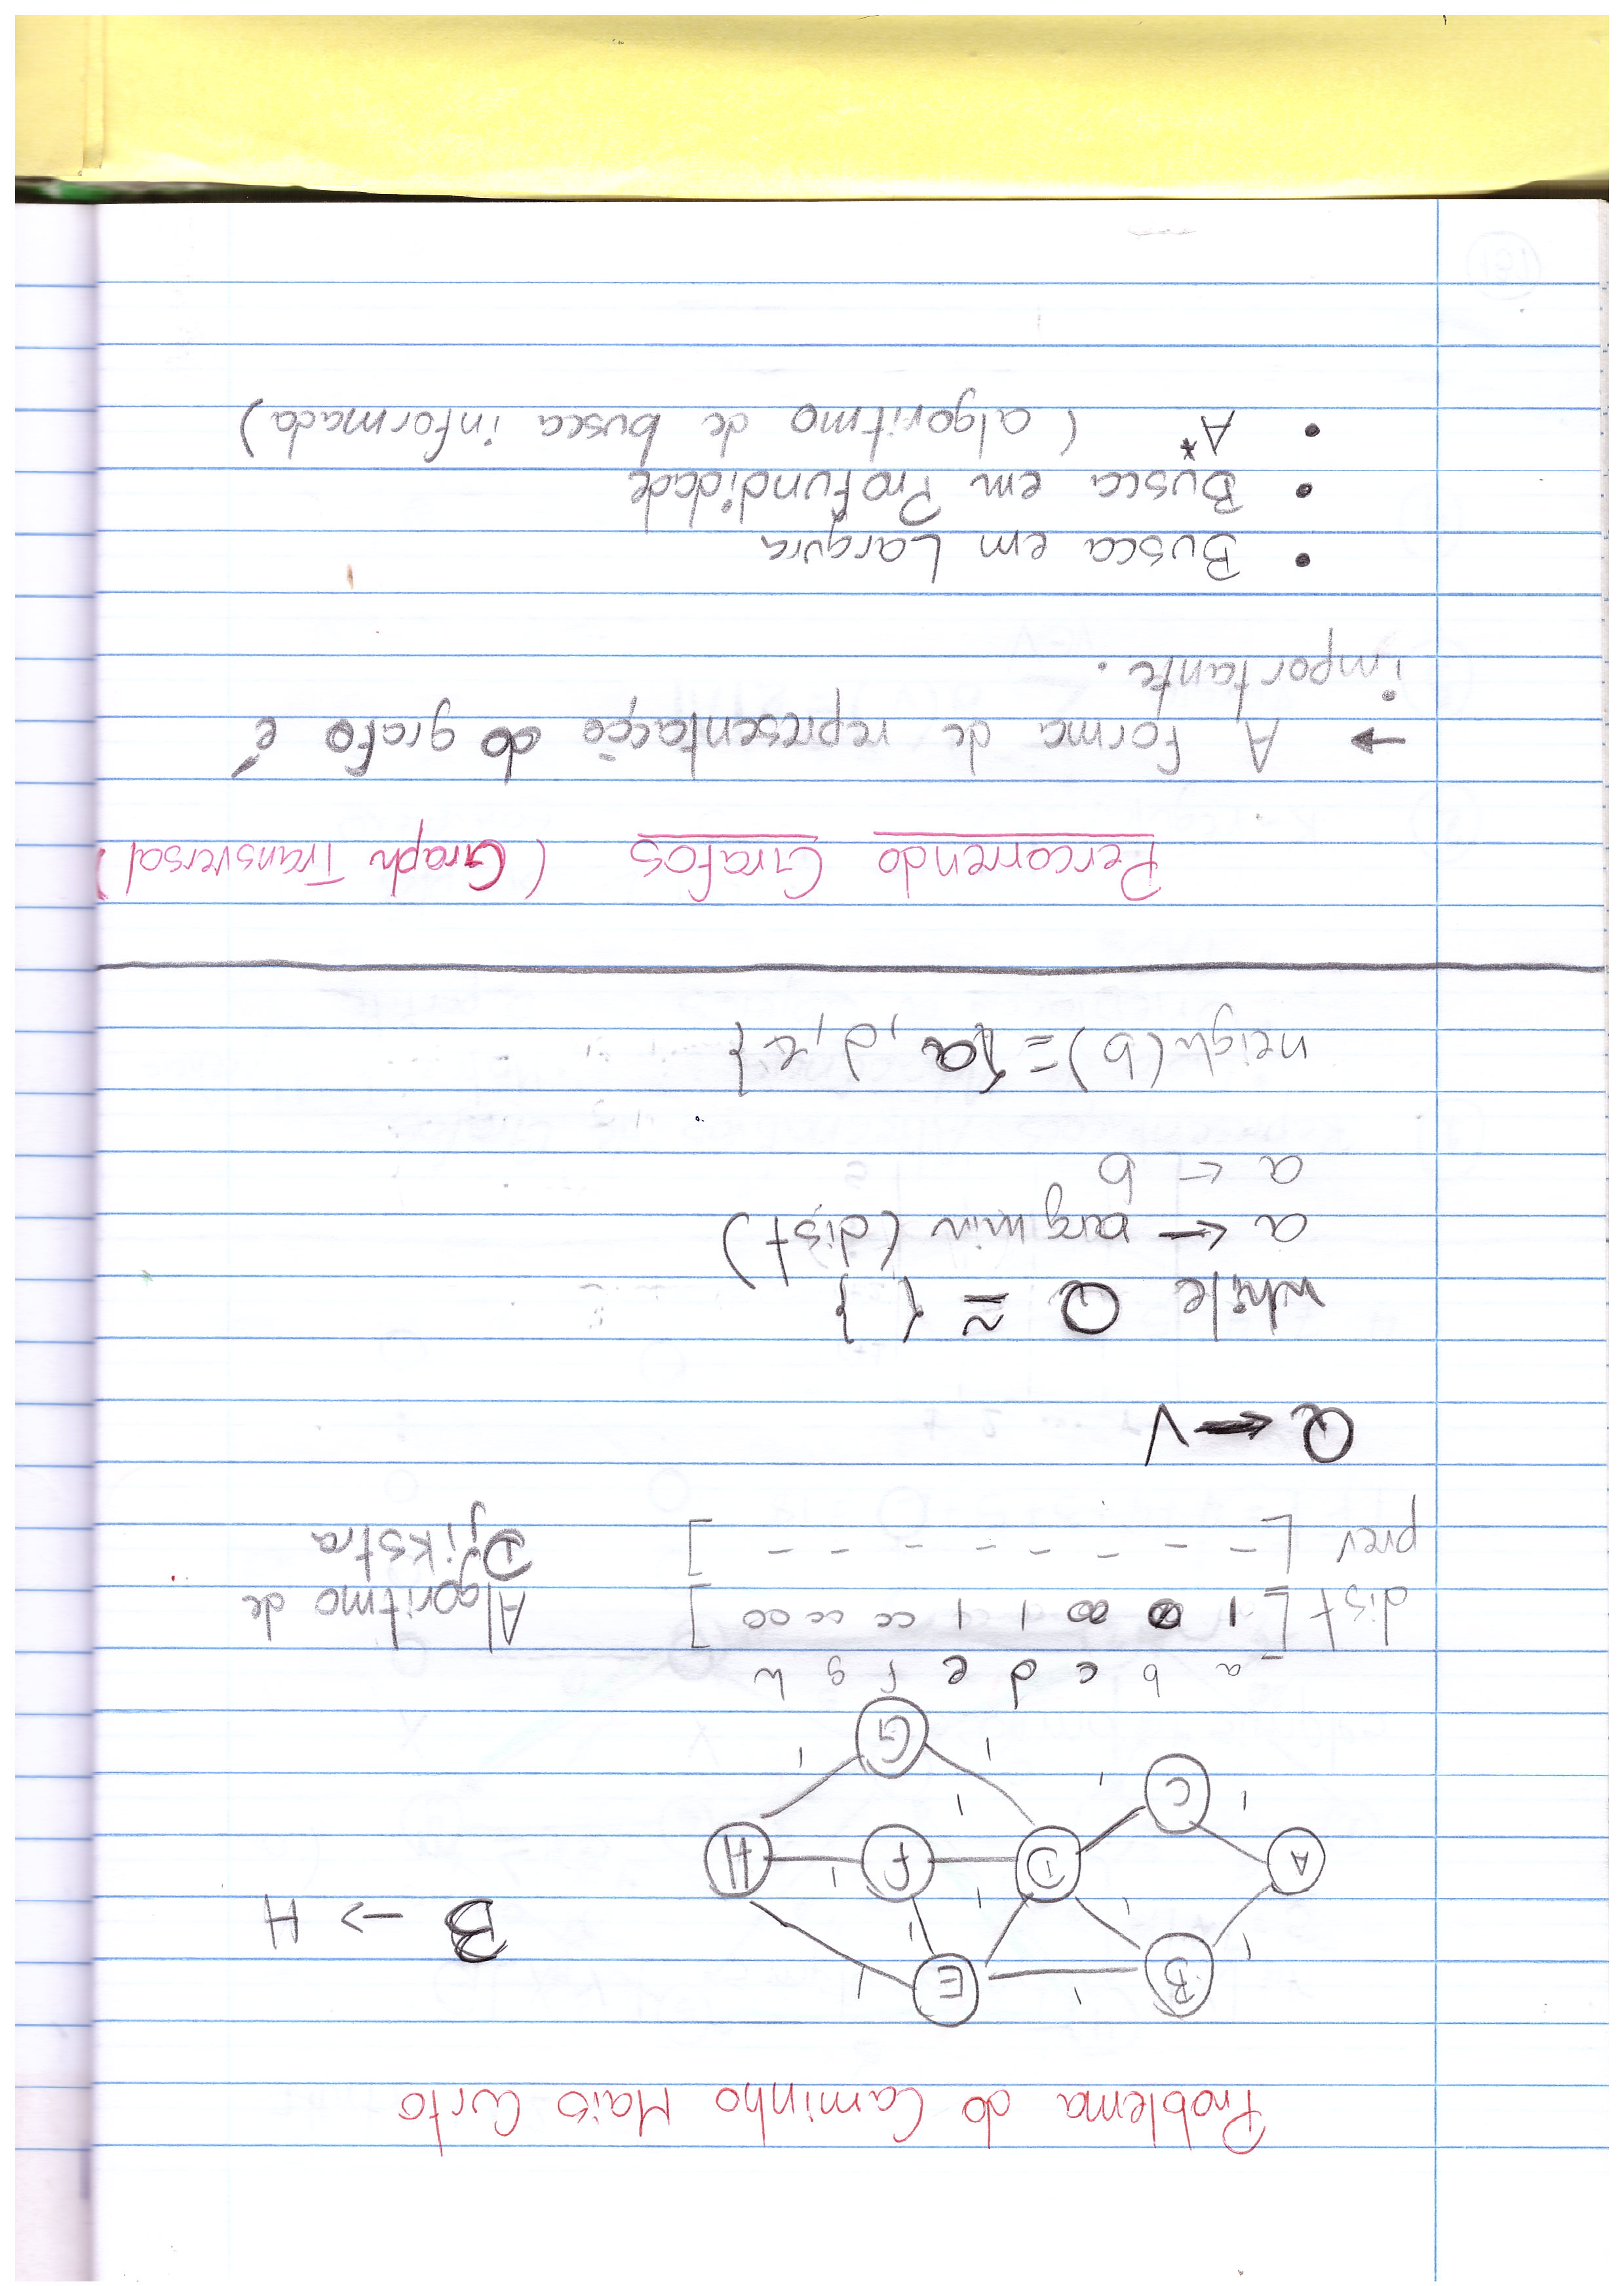 Problema do Caminho Mais Curto
B E
A D F H
C
G
1 1 1 1 1 1 1 1 1 1 1 1
B → H
a b c d e f g h
dist [ 1 0 ∞ 1 1 ∞ ∞ ∞ ]
prev [ - - - - - - - - ]
Algoritmo de
Djikstra
Q ← V
while Q ≃ { }
a ← argmin (dist)
a ← b
neigh(b) = {a, d, e}
Percorrendo Grafos (Graph Transversal)
→ A forma de representação do grafo é
importante.
• Busca em Largura
• Busca em Profundidade
• A* (algoritmo de busca informada)